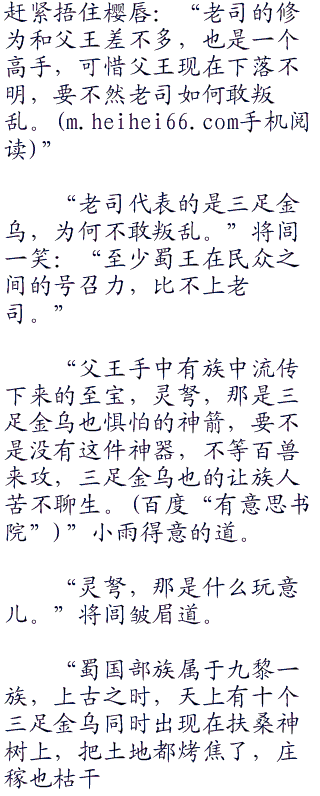 赶紧捂住樱唇：“老司的修
为和父王差不多，也是一个
高手，可惜父王现在下落不
明，要不然老司如何敢叛
乱。(m.heihei66.com手机阅
读)”
“老司代表的是三足金
乌，为何不敢叛乱。”将闾
一笑：“至少蜀王在民众之
间的号召力，比不上老
司。”
“父王手中有族中流传
下来的至宝，灵弩，那是三
足金乌也惧怕的神箭，要不
是没有这件神器，不等百兽
来攻，三足金乌也的让族人
苦不聊生。(百度“有意思书
院”)”小雨得意的道。
“灵弩，那是什么玩意
儿。”将闾皱眉道。
“蜀国部族属于九黎一
族，上古之时，天上有十个
三足金乌同时出现在扶桑神
树上，把土地都烤焦了，庄
稼也枯干